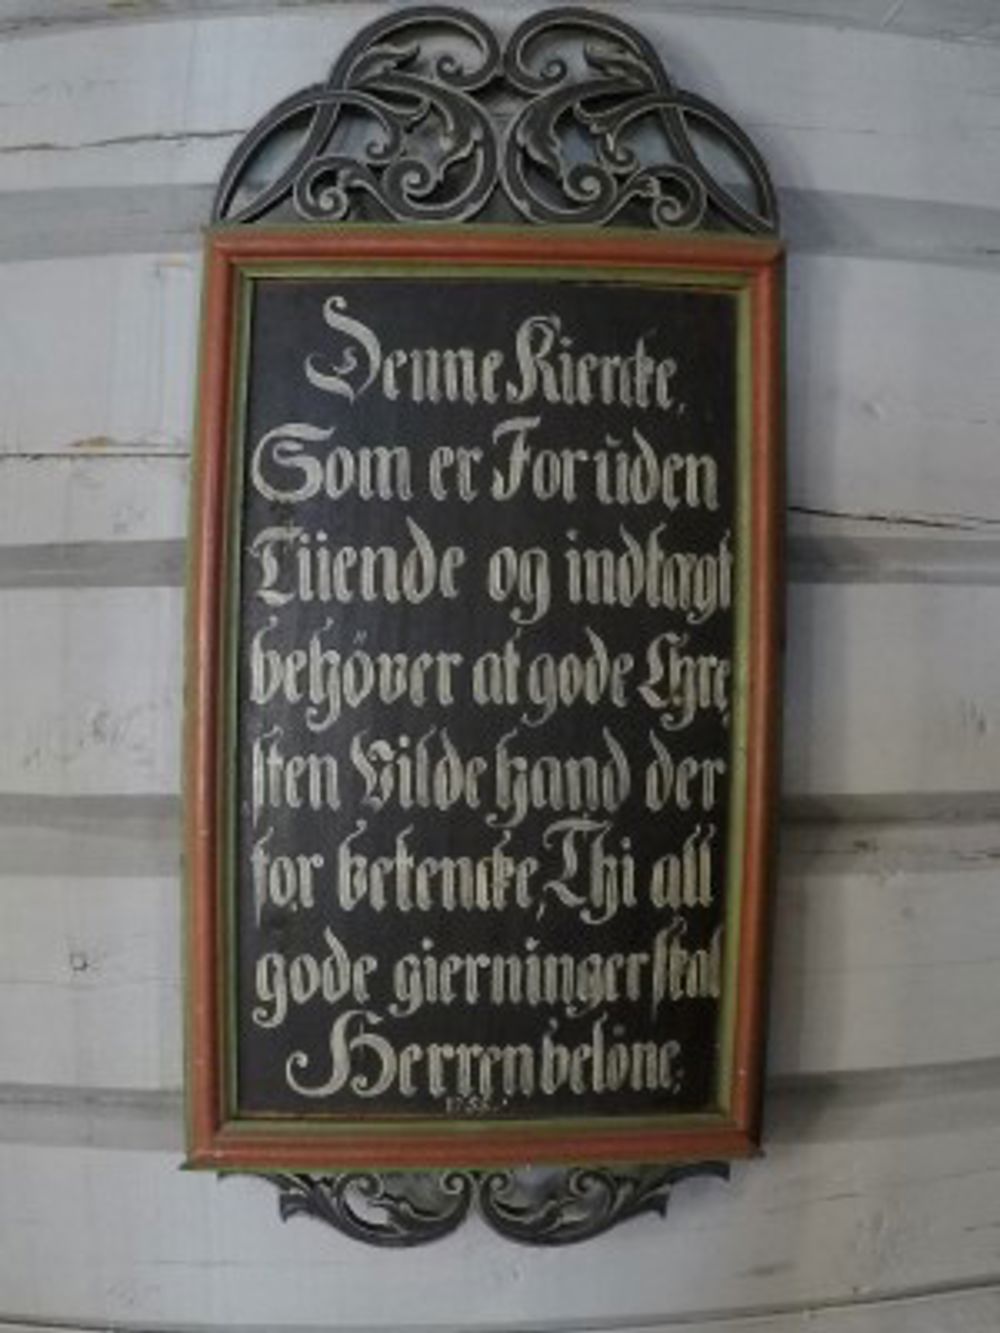 Denne Kiercke,
Som er Foruden
Tiiende og indtægt
behöver at gode Chre,
sten Vilde hand der
for betencke, Thi all
gode gierninger skal
Herren belöne;